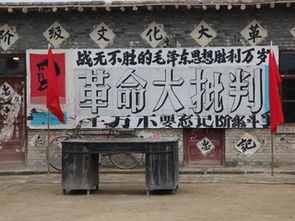 阶级文化大革
战无不胜的毛泽东思想胜利万岁
革命大批判
千万不要忘记阶级斗争
忠